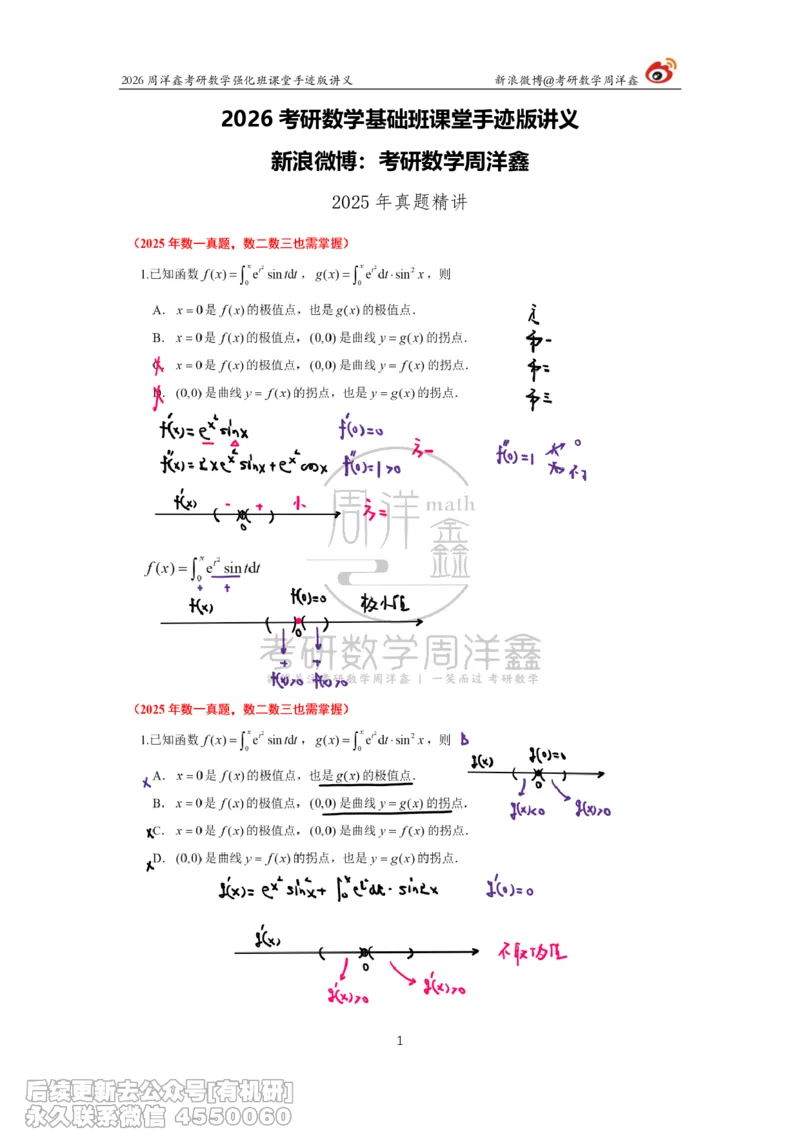 2026周洋鑫考研数学强化班课堂手迹版讲义 新浪微博@考研数学周洋鑫
2026考研数学基础班课堂手迹版讲义
新浪微博：考研数学周洋鑫
2025年真题精讲
（2025年数一真题，数二数三也需掌握）
1.已知函数 f(x)=∫₀ˣ e^{t²} sin t dt，g(x)=∫₀ˣ e^{t²} dt·sin² x，则
A．x=0是f(x)的极值点，也是g(x)的极值点．
B．x=0是f(x)的极值点，(0,0)是曲线y=g(x)的拐点．
C．x=0是f(x)的极值点，(0,0)是曲线y=f(x)的拐点．
D．(0,0)是曲线y=f(x)的拐点，也是y=g(x)的拐点．
f'(x)=e^{x²}sinx f'(0)=0
f''(x)=2xe^{x²}sinx+e^{x²}cosx f''(0)=1>0
f''(0)=1
f'(x) - + 小
0
f(x)=∫₀ˣ e^{t²} sin t dt
+ +
f(x) f(0)=0 极小值
0
+ +
f(x)>0 f(x)>0
周洋鑫 math
考研数学周洋鑫
考研数学周洋鑫 | 一笑而过 考研数学
（2025年数一真题，数二数三也需掌握）
1.已知函数 f(x)=∫₀ˣ e^{t²} sin t dt，g(x)=∫₀ˣ e^{t²} dt·sin² x，则 B
g(x) g(0)=0
0
g(x)<0 g(x)>0
A．x=0是f(x)的极值点，也是g(x)的极值点．
B．x=0是f(x)的极值点，(0,0)是曲线y=g(x)的拐点．
C．x=0是f(x)的极值点，(0,0)是曲线y=f(x)的拐点．
D．(0,0)是曲线y=f(x)的拐点，也是y=g(x)的拐点．
g'(x)=e^{x²}sin²x+∫₀ˣ e^{t²}dt·sin2x g'(0)=0
g'(x) 不取极值
0
g'(x)>0 g'(x)>0
1
后续更新去公众号[有机研]
永久联系微信 4550060